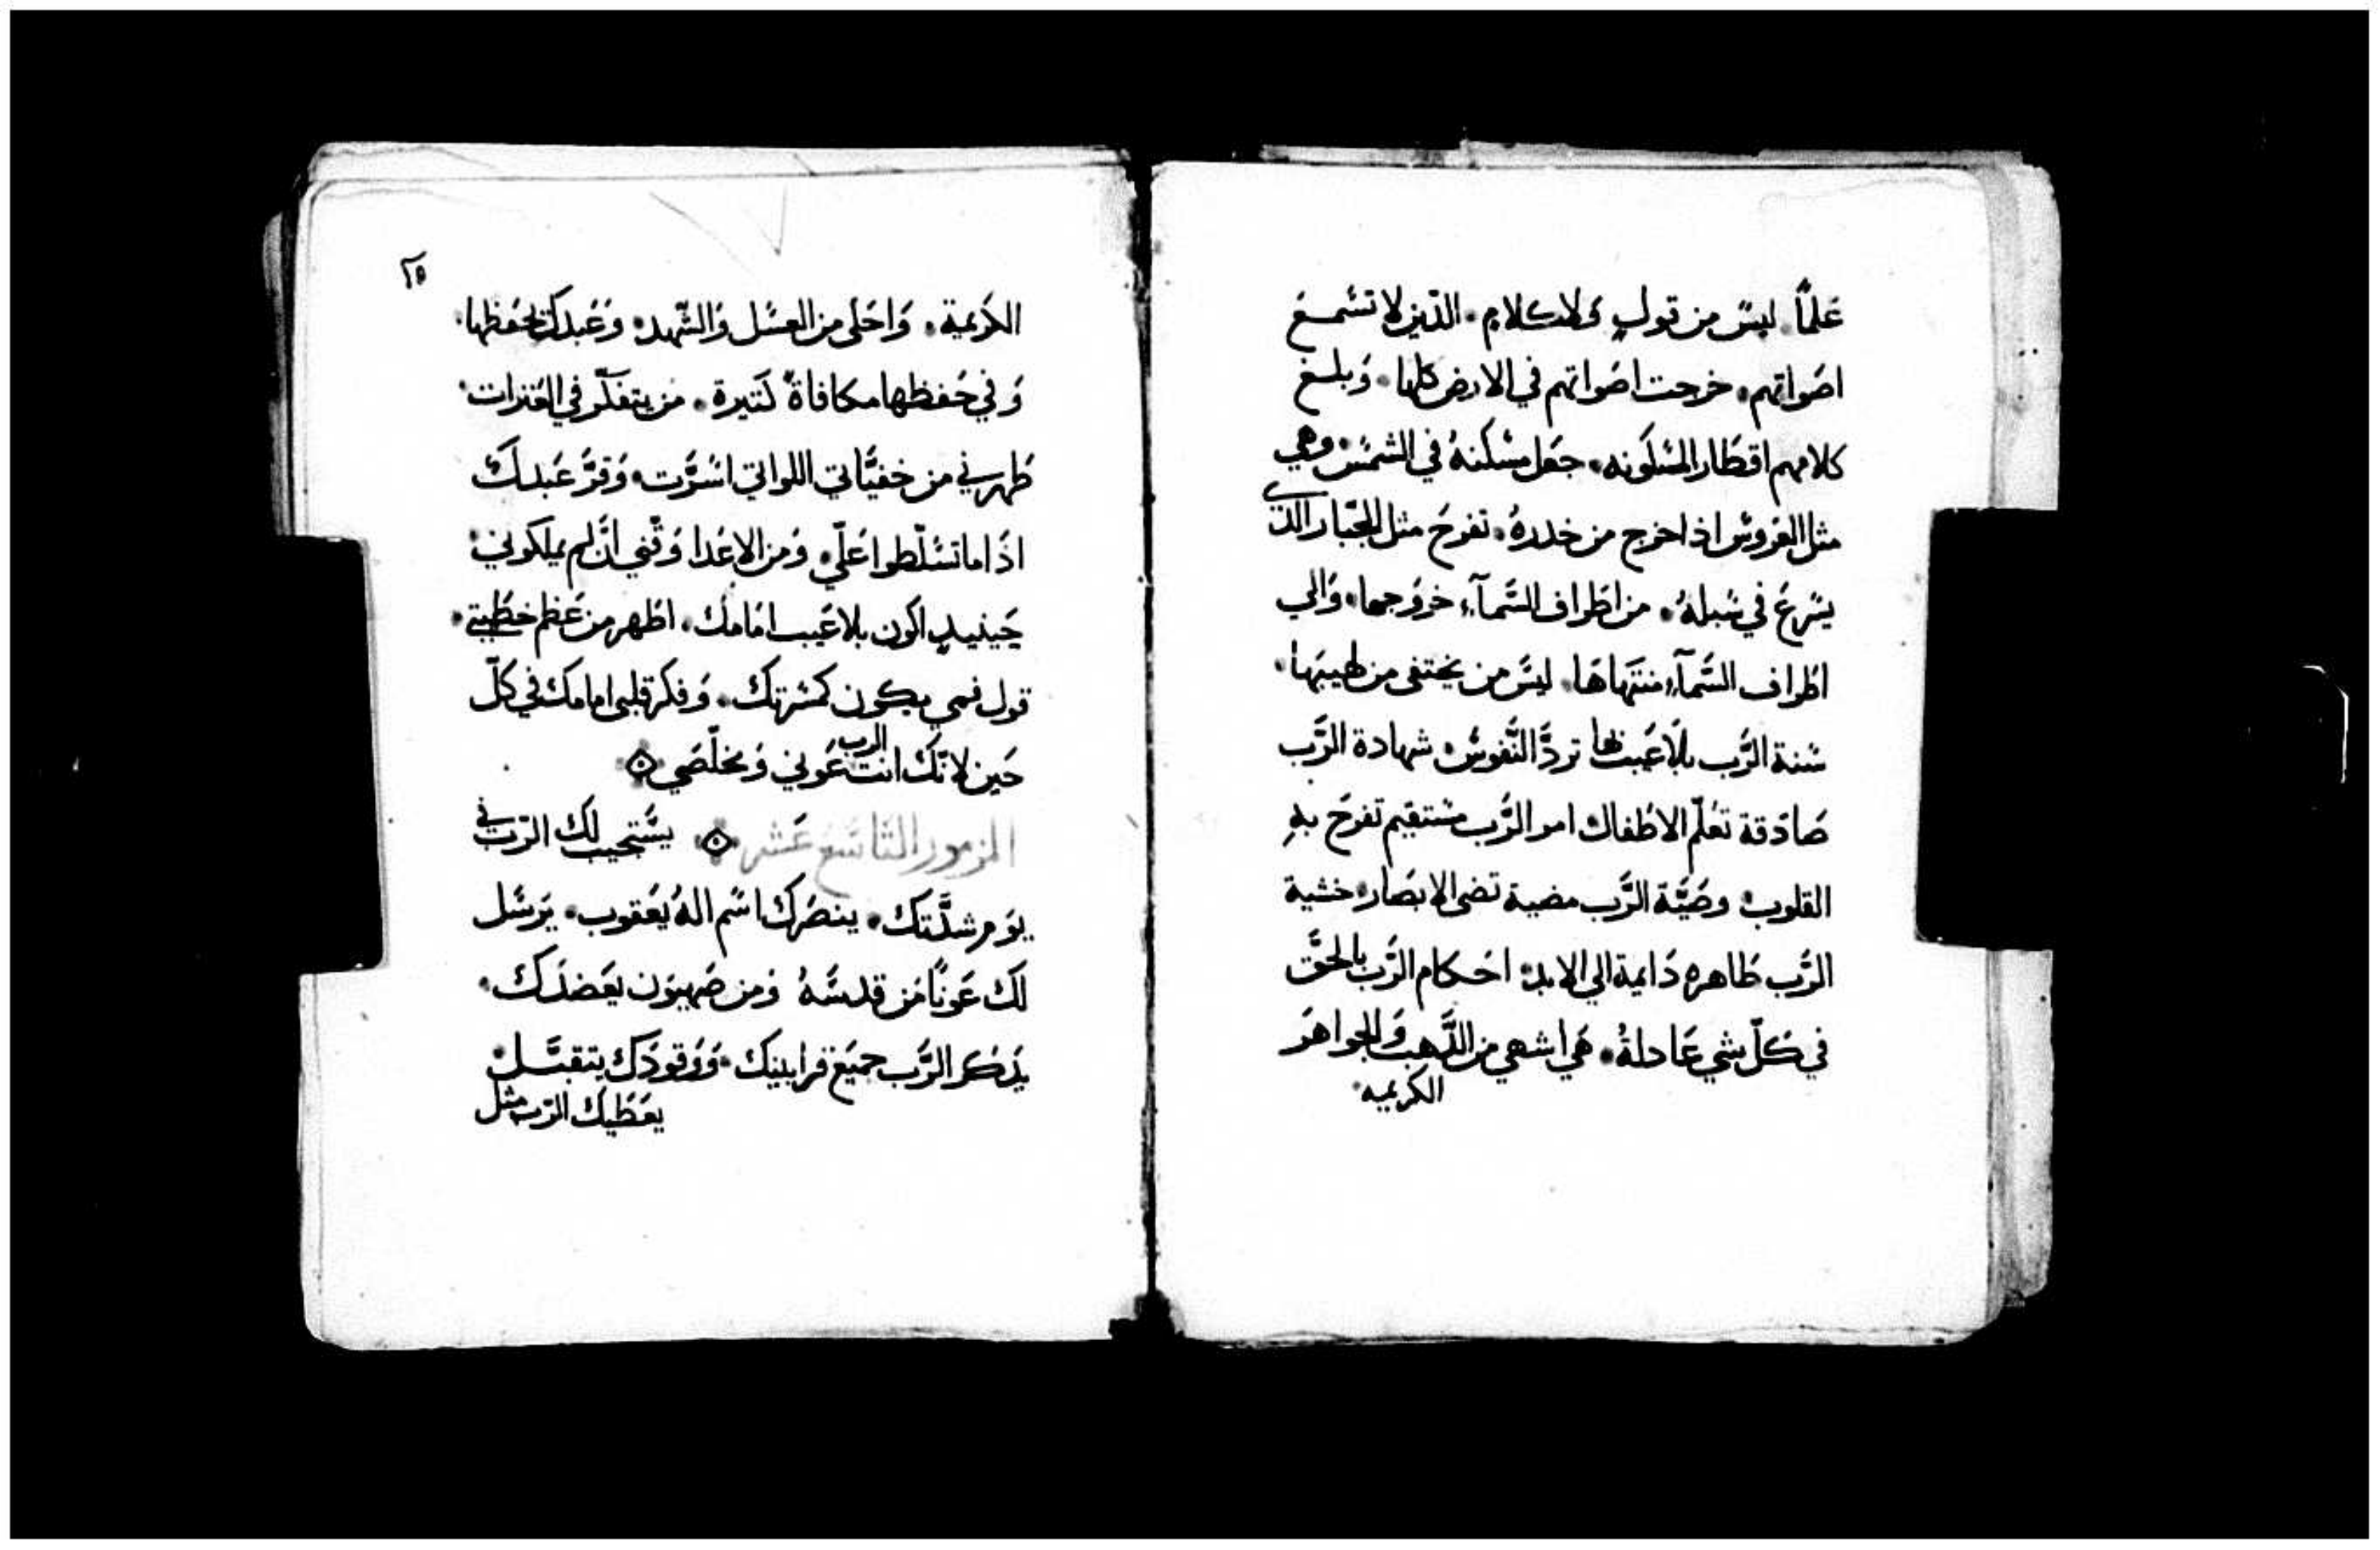 عَلمًا. ليسَ من قولٍ وَلا كلامٍ. الذّين لا تسْمع
اصَواتهم. خرجت اصَواتهم في الارض كلها. وَبلغ
كلامهم اقطَار المسْكَونه. جعَل مسْكنهُ في الشمسْ وهي
مثل العَروسْ اذا خرج من خدرهُ. تفرحَ مثل الجبّار الذي
يسْرعَ في سْبلهُ. من اطَراف السَّمآءِ خروَجها. وَالي
اطَراف السَّمآءِ منتَهاهَا. ليسَ من يختفى من لهيبَها.
سْنة الرَّب بلَا عَيب تردَّ النَّفوسْ. شهادة الرَّب
صَادَقة تعَلّم الاطَفال. امر الرَّب مسْتقيم تفرحَ بهِ
القلوب. وصَيَّة الرَّب مضية تضى الابصَار. خشية
الرَّب طَاهره دَايمة الي الابد. احَكام الرَّب بالحَقَّ
في كلّ شي عَادلةُ. هَي اشهي من الذَّهب وَالجواهَر
الكريمه.
١٥
الكَريمة. وَاحَلى من العسَل وَالشّهد. وَعَبدك يحَفظها.
وَفي حَفظها مكافاةً كَتيرة. من يتفكّر في العَترات.
طَهرني من خفيَّاتي اللواتي اسْترَت. وَقرَّ عَبدكَ
اذَا ما تسْلّطوا عَليّ. وَمن الاعَدا وَقّني انَّ لم يملكوني.
حَينيدٍ اكون بلا عَيب امَامك. اطَهر من عَظم خطَيتي.
قول فمي يكون كمسْرتك. وَفكر قلبى امامك في كلّ
حَين لانّك انت الرب عَوني وَمخلّصَي
المزمور التاسَع عَشر يسْتجيب لك الرّب في
يوَم شدَّتك. ينصَرك اسَم الهُ يعَقوب. يَرسَل
لَك عَونًا مَن قدسَّهُ وَمن صَهيوَن يعَضدَك.
يذَكر الرَّب جميَع قرابينك. وَوَقودَك يتقبَّل.
يعَطَيك الرّب مثل